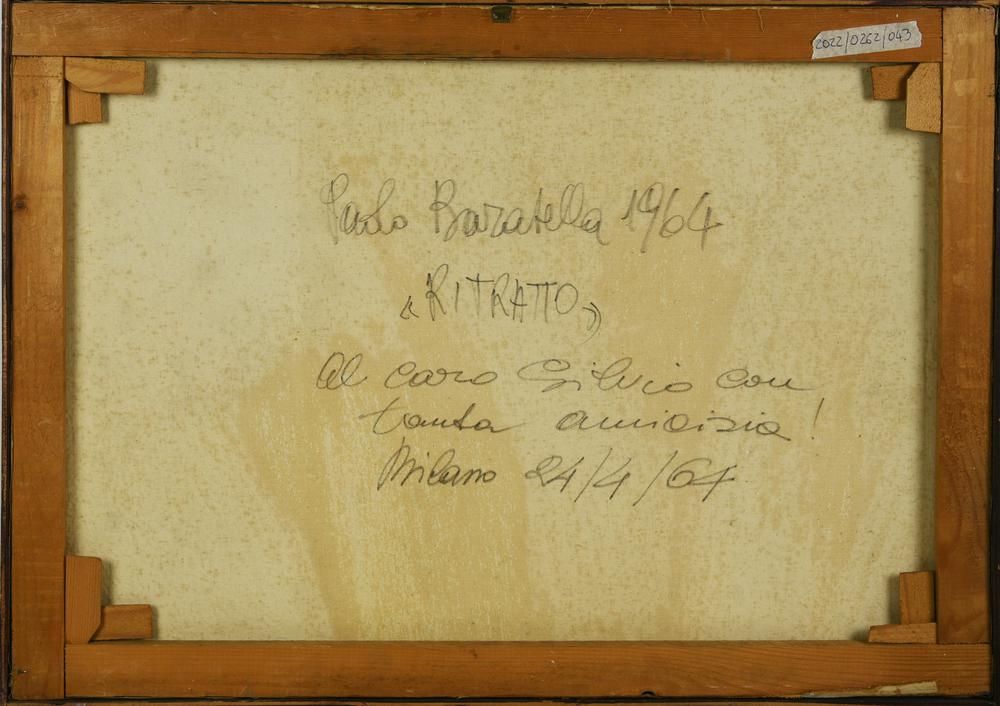 2022/0262/043
Paolo Baratella 1964
«RITRATTO»
Al caro Silvio con
tanta amicizia!
Milano 24/4/64